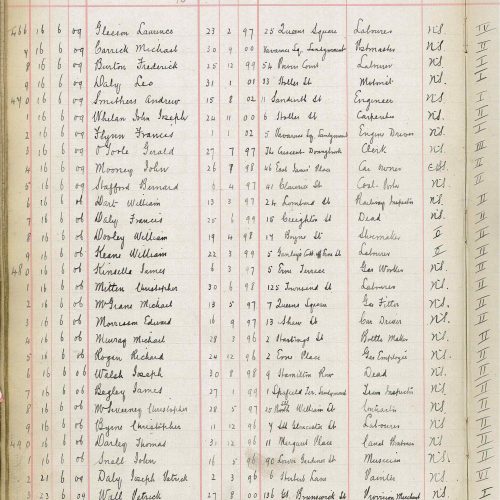 466 16 6 09 Gleeson Laurence 23 2 97 25 Queens Square Labourer Nil IV
7 16 6 09 Carrick Michael 30 9 00 Sandymount Postmaster Nil II
8 16 6 09 Burton Frederick 25 12 99 54 Court Labourer Nil I
9 16 6 09 Daly Leo 31 1 01 33 Holles St Nil I
470 16 6 09 Smithers Andrew 15 8 02 11 Sandwith St Engineer Nil I
1 16 6 09 Whelan John Joseph 24 11 00 6 Holles St Carpenter Nil
2 16 6 09 Flynn Francis 1 1 02 5 Sandymount Engine Driver Nil
3 16 6 09 O'Toole Gerald 27 7 97 The Crescent Donnybrook Clerk Nil III
4 16 6 09 Mooney John 26 7 98 46 East James' Place Car Owner
5 16 6 09 Stafford Bernard 6 4 97 41 Clarence St Coal Nil
6 16 6 06 Dart William 13 3 97 24 Lombard St Railway Inspector Nil II
7 16 6 06 Daly Francis 25 6 99 15 Creighton St Dead Nil II
8 16 6 06 Dooley William 19 4 98 17 Boyne St Shoemaker II
9 16 6 06 Keane William 22 3 99 5 Labourer II
480 16 6 06 Kinsella James 6 3 97 5 Erne Terrace Gas Worker Nil II
1 16 6 06 Mitten Christopher 30 6 98 125 Townsend St Labourer Nil II
2 16 6 06 McGrane Michael 13 5 97 7 Queens Square Gas Fitter Nil II
3 16 6 06 Morrissem Edward 16 9 97 13 Shaw St Car Driver Nil II
4 16 6 06 Murray Michael 28 3 96 2 Hastings St Bottle Maker Nil II
5 16 6 06 Rogan Richard 24 12 96 2 Erne Place Gas Employee Nil II
6 16 6 06 Walsh Joseph 30 8 98 9 Hamilton Row Dead Nil II
7 16 6 06 Begley James 27 1 99 Sandymount Tram Inspector Nil II
8 16 6 06 McSweeney Christopher 28 5 97 25 North William St Nil II
9 16 6 06 Byrne Christopher 11 12 96 Gloucester St Labourer Nil II
490 16 6 06 Darley Thomas 31 12 96 11 Margaret Place Nil II
1 16 6 06 Snall John 16 5 96 90 Lower Gardiner St Musician Nil II
2 21 6 06 Daly Joseph Patrick 2 3 96 6 Lane Painter Nil II
3 23 6 06 Wall Patrick 27 0 96 136 Gt Brunswick St Provision Merchant Nil II